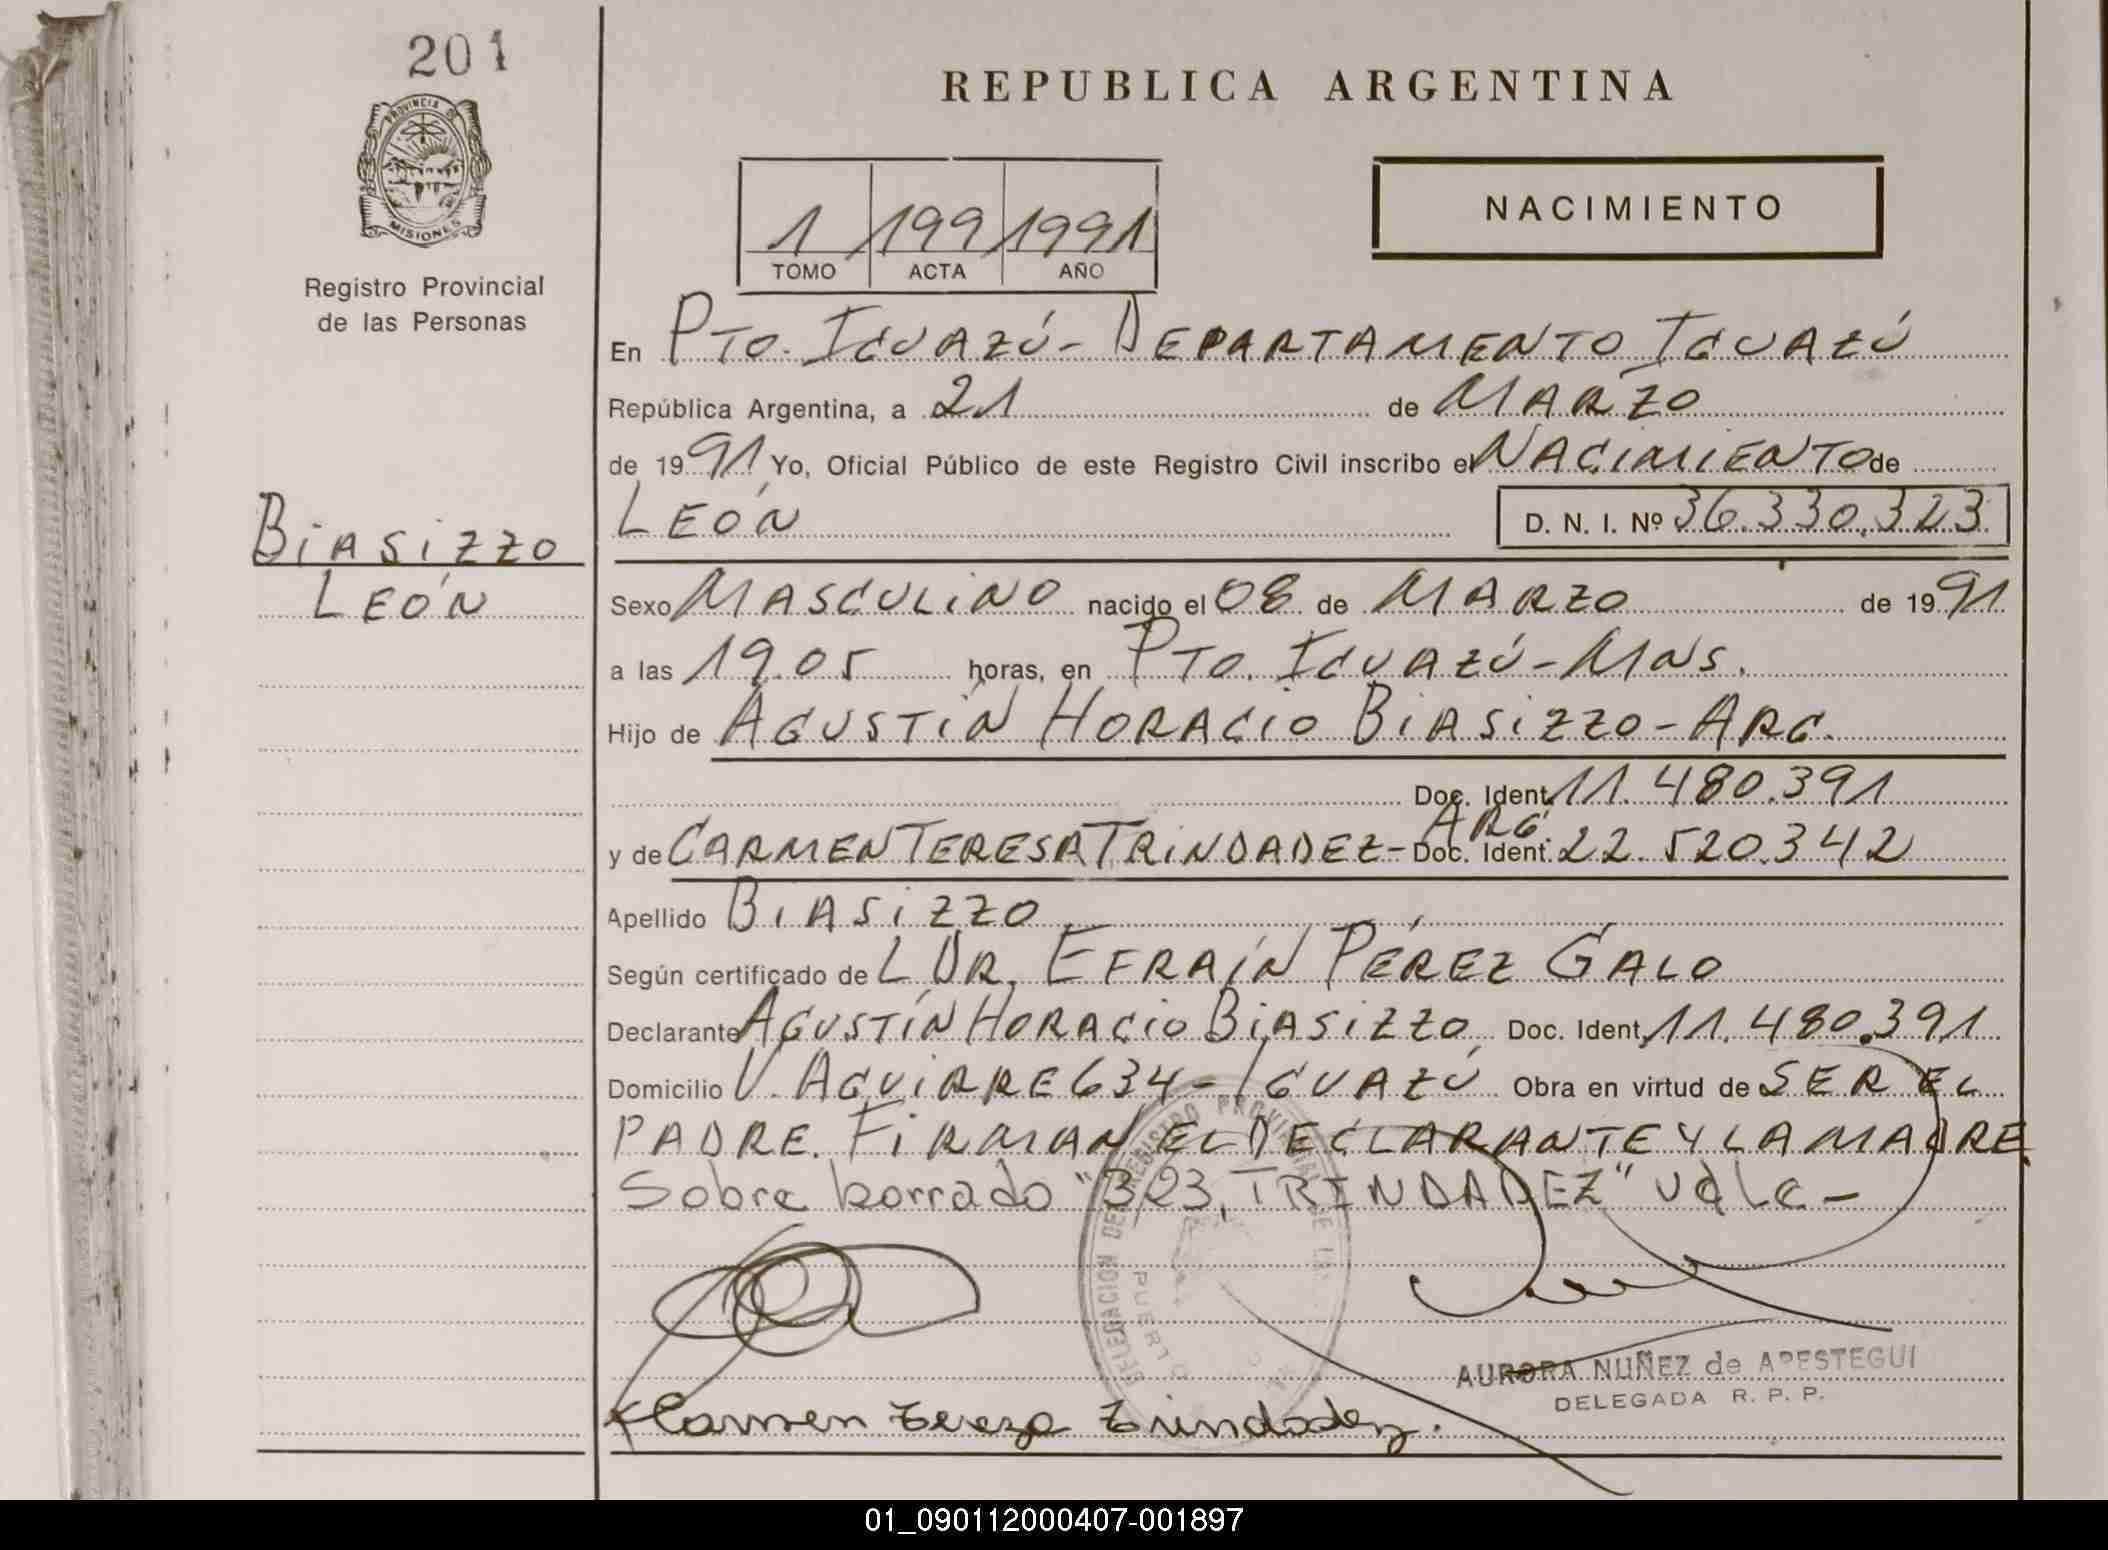 201
PROVINCIA DE
MISIONES
Registro Provincial
de las Personas
BIASIZZO
LEÓN
REPUBLICA ARGENTINA
NACIMIENTO
1 199 1991
TOMO ACTA AÑO
En PTO. IGUAZÚ - DEPARTAMENTO IGUAZÚ
República Argentina, a 21 de MARZO
de 1991 Yo, Oficial Público de este Registro Civil inscribo el NACIMIENTO de
LEÓN D. N. I. Nº 36.330.323
Sexo MASCULINO nacido el 08 de MARZO de 1991
a las 19.05 horas, en PTO. IGUAZÚ - MNS.
Hijo de AGUSTÍN HORACIO BIASIZZO - ARG.
Doc. Ident. 11.480.391
y de CARMEN TERESA TRINDADEZ - ARG. Doc. Ident. 22.520.342
Apellido BIASIZZO
Según certificado de L DR. EFRAÍN PÉREZ GALO
Declarante AGUSTÍN HORACIO BIASIZZO Doc. Ident. 11.480.391
Domicilio V. AGUIRRE 634 - IGUAZÚ Obra en virtud de SER EL
PADRE. FIRMAN EL DECLARANTE Y LA MADRE.
Sobre borrado "323, TRINDADEZ" vale -
DELEGACION DEL REGISTRO PROVINCIAL DE LAS
PUERTO
AURORA NUÑEZ de APESTEGUI
DELEGADA R. P. P.
Carmen Tereza Trindadez.
01_090112000407-001897